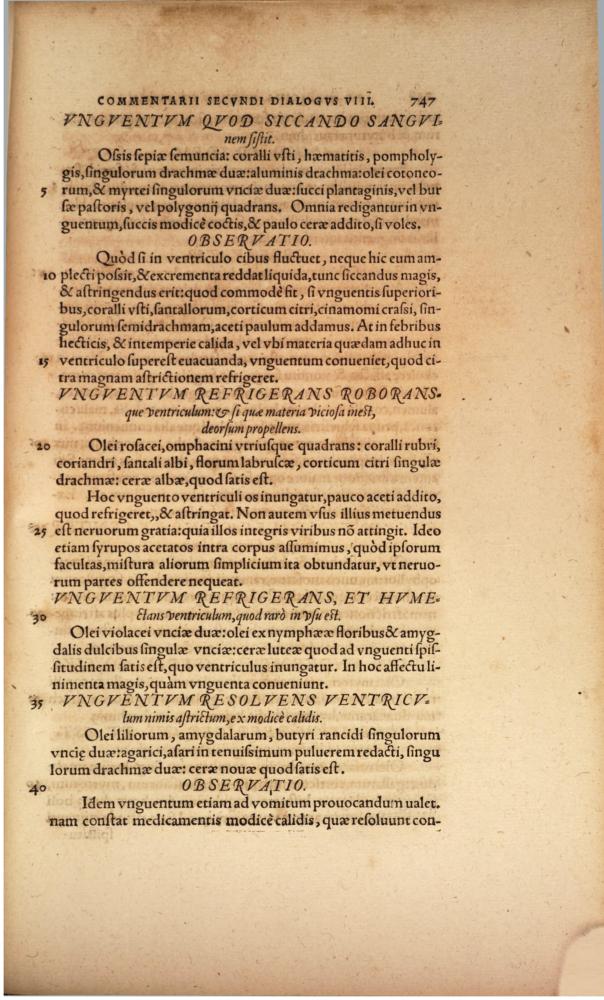 COMMENTARII SECVNDI DIALOGVS VIII. 747
VNGVENTVM QVOD SICCANDO SANGVI-
nem sistit.
Ossis sepiæ semuncia: coralli vsti, hæmatitis, pompholy-
gis, singulorum drachmæ duæ: aluminis drachma: olei cotoneo-
5 rum, & myrtei singulorum vnciæ duæ: succi plantaginis, vel bur
sæ pastoris, vel polygonij quadrans. Omnia redigantur in vn-
guentum, succis modicè coctis, & paulo ceræ addito, si voles.
OBSERVATIO.
Quòd si in ventriculo cibus fluctuet, neque hic eum am-
10 plecti possit, & excrementa reddat liquida, tunc siccandus magis,
& astringendus erit: quod commodè fit, si vnguentis superiori-
bus, coralli vsti, santallorum, corticum citri, cinamomi crassi, sin-
gulorum semidrachmam, aceti paulum addamus. At in febribus
hecticis, & intemperie calida, vel vbi materia quædam adhuc in
15 ventriculo superest euacuanda, vnguentum conueniet, quod ci-
tra magnam astrictionem refrigeret.
VNGVENTVM REFRIGERANS ROBORANS-
que ventriculum: & si quæ materia viciosa inest,
deorsum propellens.
20 Olei rosacei, omphacini vtriusque quadrans: coralli rubri,
coriandri, santali albi, florum labruscæ, corticum citri singulæ
drachmæ: ceræ albæ, quod satis est.
Hoc vnguento ventriculi os inungatur, pauco aceti addito,
quod refrigeret,, & astringat. Non autem vsus illius metuendus
25 est neruorum gratia: quia illos integris viribus nõ attingit. Ideo
etiam syrupos acetatos intra corpus assumimus, quòd ipsorum
facultas, mistura aliorum simplicium ita obtundatur, vt neruo-
rum partes offendere nequeat.
VNGVENTVM REFRIGERANS, ET HVME-
30 ctans ventriculum, quod rarò in vsu est.
Olei violacei vnciæ duæ: olei ex nymphææ floribus & amyg-
dalis dulcibus singulæ vnciæ: ceræ luteæ quod ad vnguenti spis-
situdinem satis est, quo ventriculus inungatur. In hoc affectu li-
nimenta magis, quàm vnguenta conueniunt.
35 VNGVENTVM RESOLVENS VENTRICV-
lum nimis astrictum, ex modicè calidis.
Olei liliorum, amygdalarum, butyri rancidi singulorum
vncię duæ: agarici, asari in tenuissimum puluerem redacti, singu
lorum drachmæ duæ: ceræ nouæ quod satis est.
40 OBSERVATIO.
Idem vnguentum etiam ad vomitum prouocandum ualet.
nam constat medicamentis modicè calidis, quæ resoluunt con-